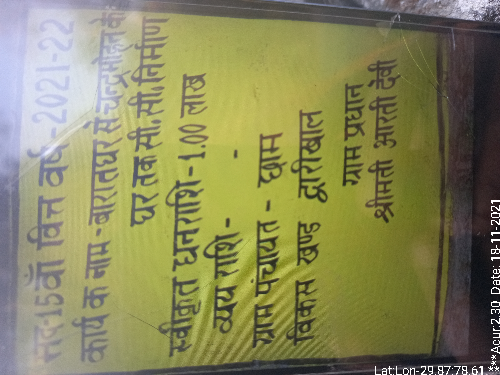 मद-15वाँ वित्त वर्ष-2021-22
कार्य क नाम-बारातघर से चन्द्रमोहन के
घर तक सी.सी.निर्माण
स्वीकृत धनराशि-1.00 लाख
व्यय राशि- -
ग्राम पंचायत - छाम
विकस खण्ड द्वारीखाल
ग्राम प्रधान
श्रीमती आरती देवी
Lat:Lon-29.87:78.61 ***Acur:2.30 Date: 18-11-2021